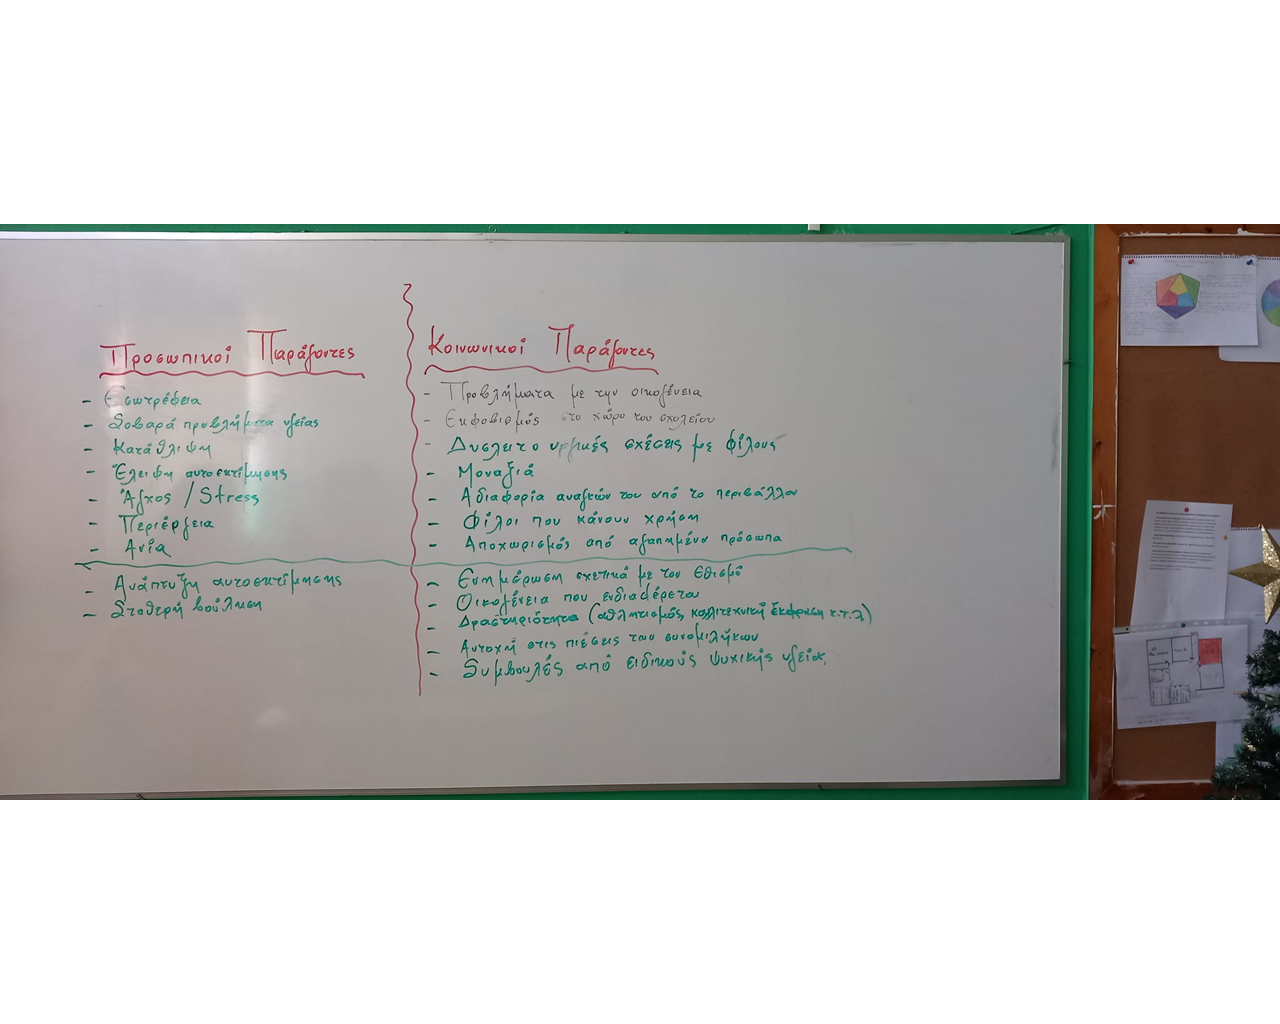 Προσωπικοί Παράγοντες
- Εσωτρέφεια
- Σοβαρά προβλήματα υγείας
- Κατάθλιψη
- Έλειψη αυτοεκτίμησης
- Άγχος / Stress
- Περιέργεια
- Ανία
- Ανάπτυξη αυτοεκτίμησης
- Σταθερή βούληση
Κοινωνικοί Παράγοντες
- Προβλήματα με την οικογένεια
- Εκφοβισμός στο χώρο του σχολείου
- Δυσλειτουργικές σχέσεις με φίλους
- Μοναξιά
- Αδιαφορία αναγκών του από το περιβάλλον
- Φίλοι που κάνουν χρήση
- Αποχωρισμός από αγαπημένα πρόσωπα
- Ενημέρωση σχετικά με τον Εθισμό
- Οικογένεια που ενδιαφέρεται
- Δραστηριότητα (αθλητισμός, καλλιτεχνική έκφραση κ.τ.λ)
- Αντοχή στις πιέσεις των συνομιλήκων
- Συμβουλές από ειδικούς ψυχικής υγείας